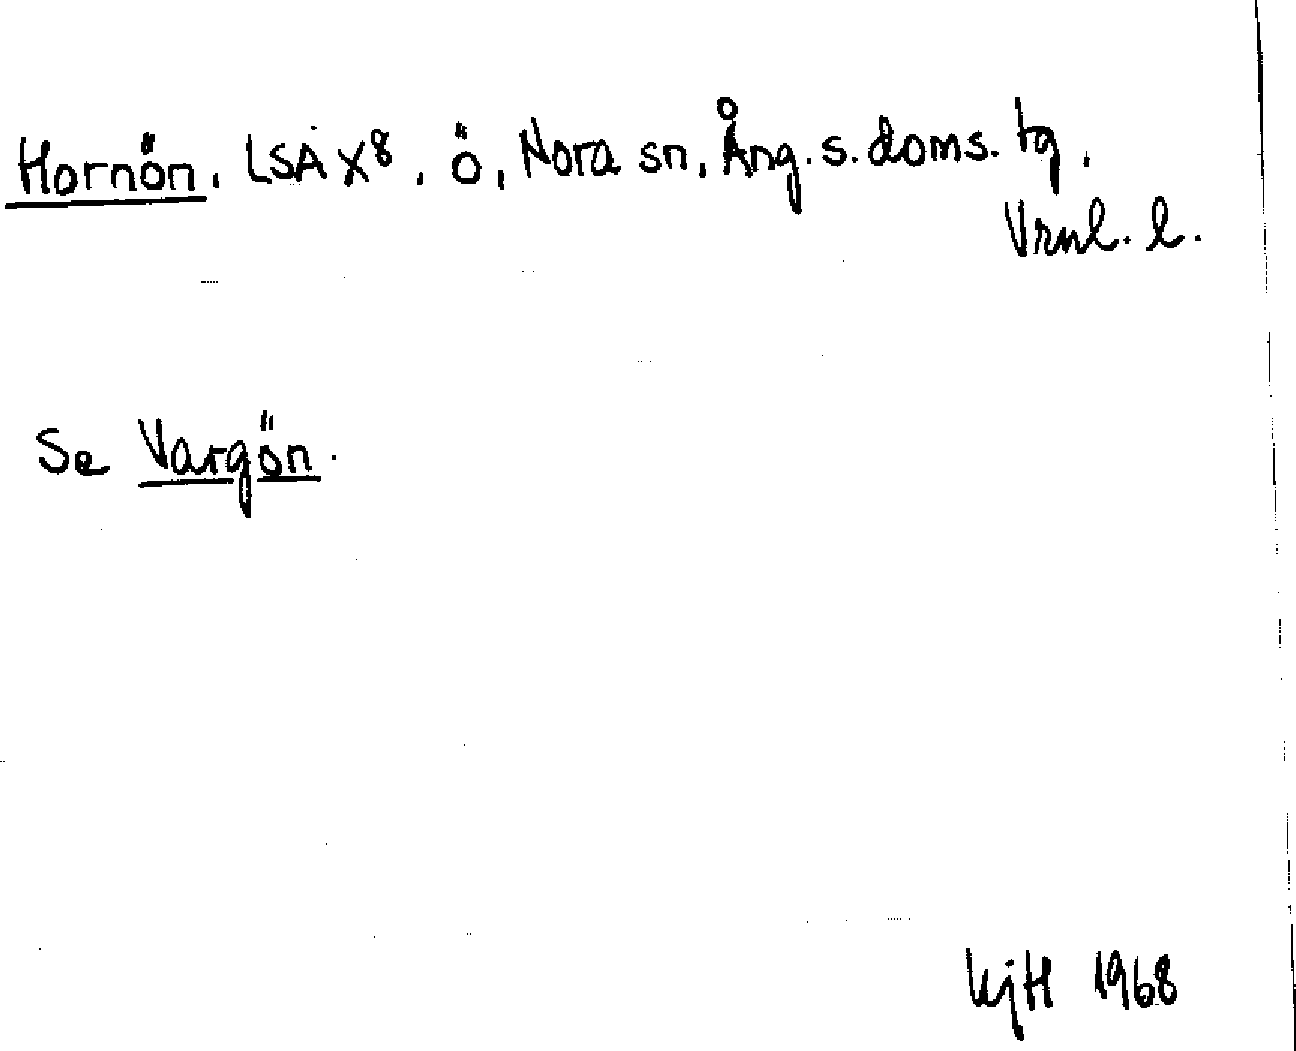 Hornön, LSA X8, ö, Nora sn, Ång. s. doms. tg,
Vrnl. l.
Se Vargön.
KjH 1968